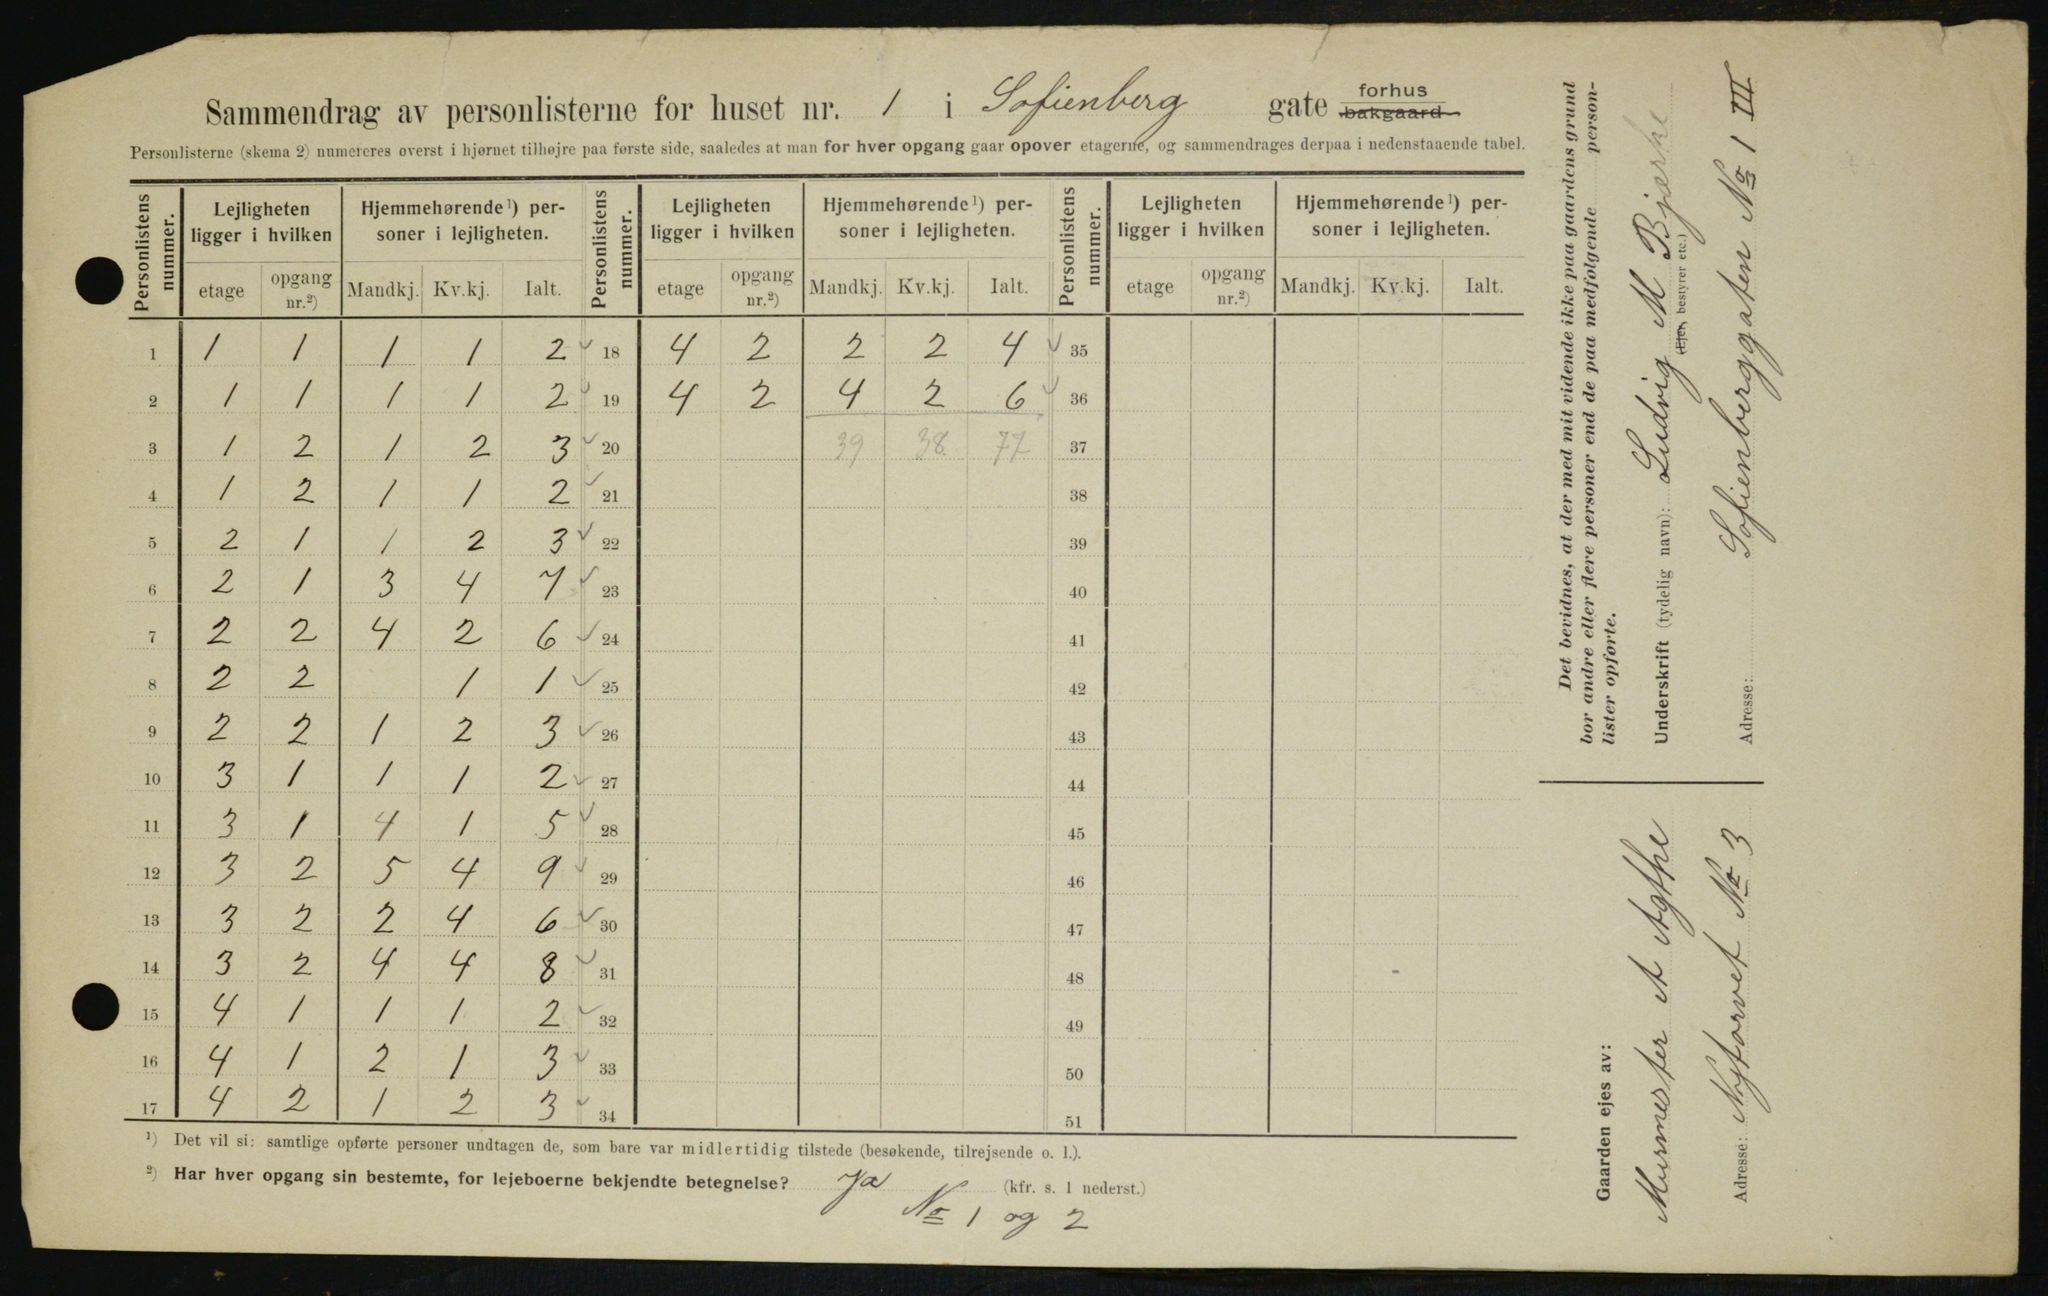 Sammendrag av personlisterne for huset nr. 1 i Sofienberg gate forhus bakgaard
Personlisterne (skema 2) numereres øverst i hjørnet tilhøjre paa første side, saaledes at man for hver opgang gaar opover etagerne, og sammendrages derpaa i nedenstaaende tabel.
Personlistens nummer. Lejligheten ligger i hvilken Hjemmehørende¹) personer i lejligheten. Personlistens nummer. Lejligheten ligger i hvilken Hjemmehørende¹) personer i lejligheten. Personlistens nummer. Lejligheten ligger i hvilken Hjemmehørende¹) personer i lejligheten.
etage opgang nr.²) Mandkj. Kv.kj. Ialt. etage opgang nr.²) Mandkj. Kv.kj. Ialt. etage opgang nr.²) Mandkj. Kv.kj. Ialt.
1 1 1 1 1 2 18 4 2 2 2 4 35
2 1 1 1 1 2 19 4 2 4 2 6 36
3 1 2 1 2 3 20 39 38 77 37
4 1 2 1 1 2 21 38
5 2 1 1 2 3 22 39
6 2 1 3 4 7 23 40
7 2 2 4 2 6 24 41
8 2 2 1 1 25 42
9 2 2 1 2 3 26 43
10 3 1 1 1 2 27 44
11 3 1 4 1 5 28 45
12 3 2 5 4 9 29 46
13 3 2 2 4 6 30 47
14 3 2 4 4 8 31 48
15 4 1 1 1 2 32 49
16 4 1 2 1 3 33 50
17 4 2 1 2 3 34 51
¹) Det vil si: samtlige opførte personer undtagen de, som bare var midlertidig tilstede (besøkende, tilrejsende o. l.).
²) Har hver opgang sin bestemte, for lejeboerne bekjendte betegnelse? Ja (kfr. s. 1 nederst.)
No 1 og 2
Det bevidnes, at der med mit vidende ikke paa gaardens grund
bor andre eller flere personer end de paa medfølgende person-
lister opførte.
Underskrift (tydelig navn): Ludvig M Bjerke
(Ejer, bestyrer etc.)
Adresse: Sofienberggaten No 1 III
Gaarden ejes av:
A
Adresse: Nytorvet No 3